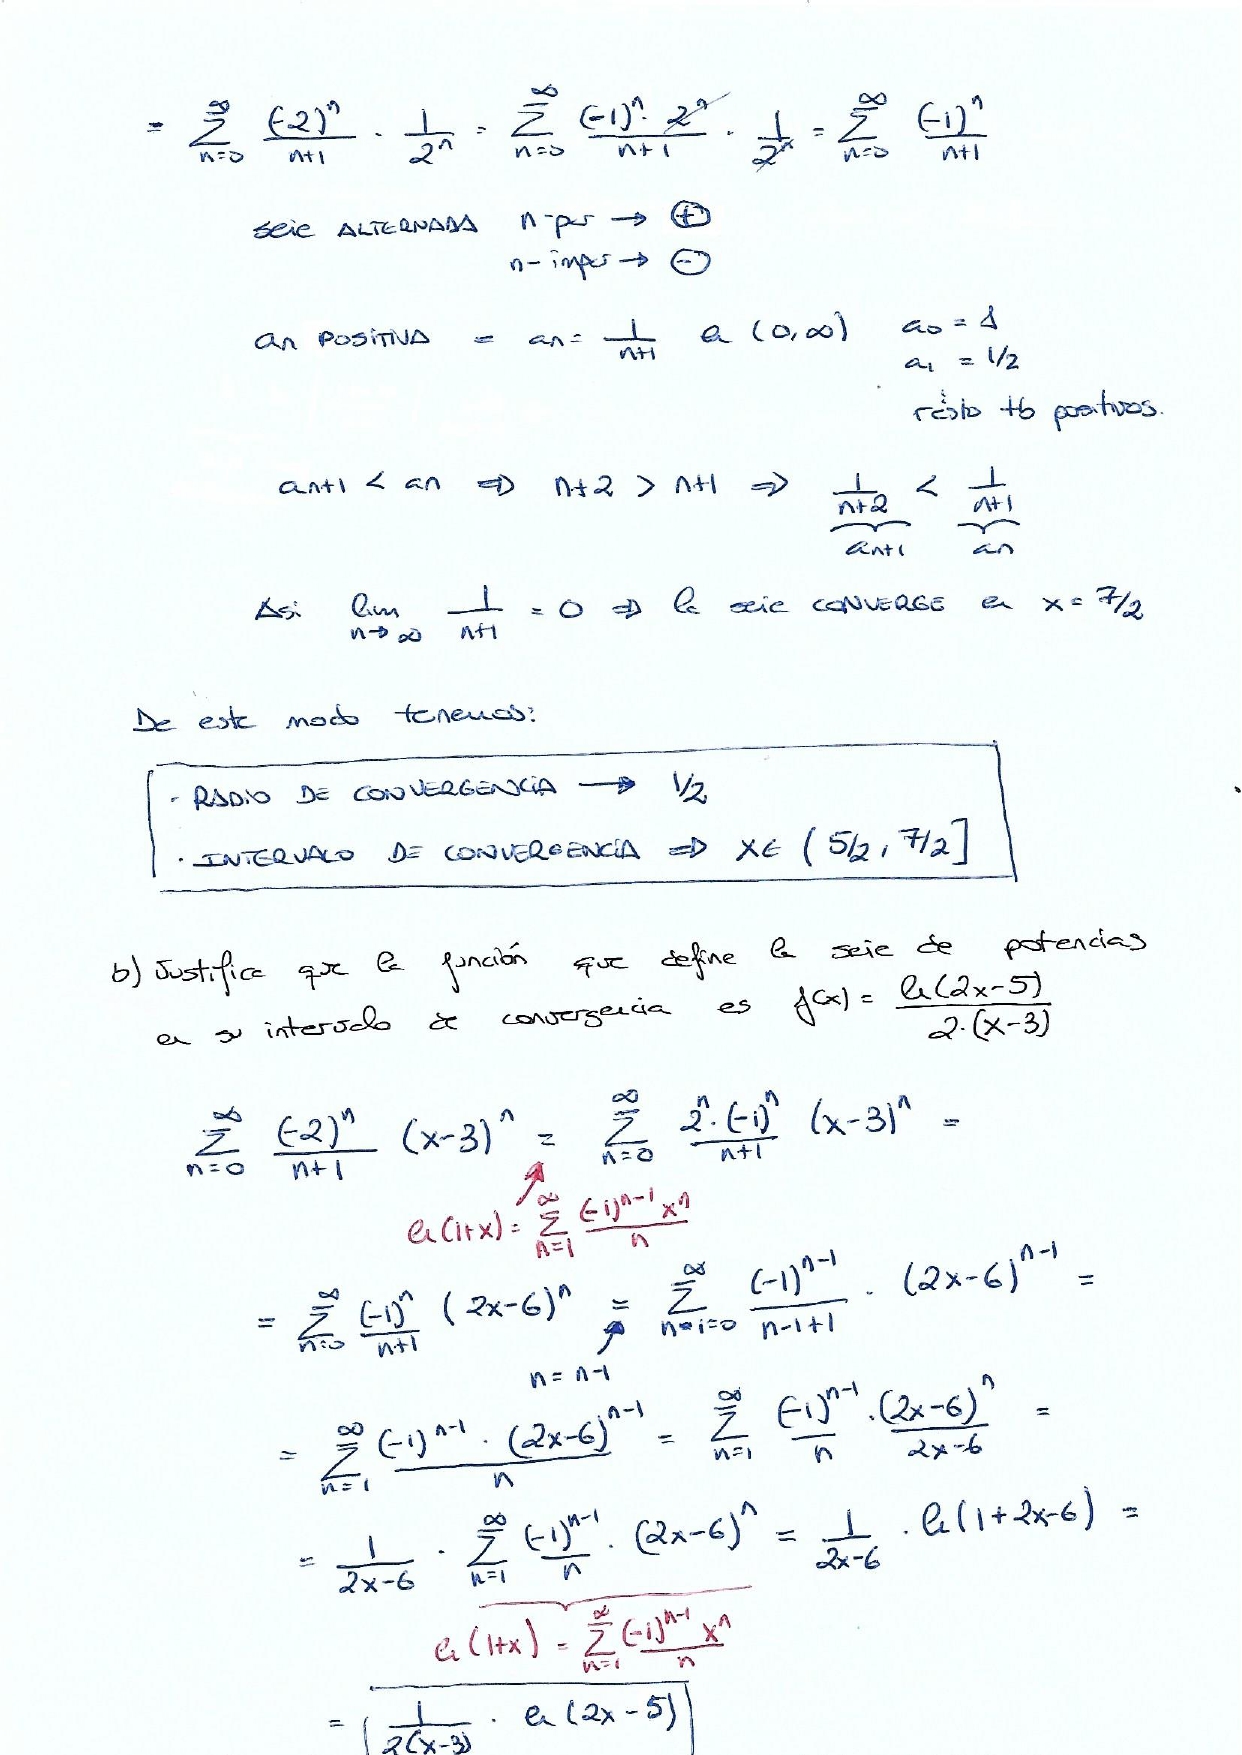 = ∑_{n=0}^{∞} (-2)^n/(n+1) · 1/2^n = ∑_{n=0}^{∞} (-1)^n · 2^n/(n+1) · 1/2^n = ∑_{n=0}^{∞} (-1)^n/(n+1)
serie ALTERNADA n-par → (+)
n-impar → (-)
an POSITIVA = an = 1/(n+1) en (0,∞) a0 = 1
a1 = 1/2
resto tb positivos.
an+1 < an ⇒ n+2 > n+1 ⇒ 1/(n+2) < 1/(n+1)
an+1 an
Asi lim_{n→∞} 1/(n+1) = 0 ⇒ la serie CONVERGE en x = 7/2
De este modo tenemos:
· RADIO DE CONVERGENCIA → 1/2
· INTERVALO DE CONVERGENCIA ⇒ X∈ (5/2, 7/2]
b) Justifica que la función que define la serie de potencias
en su intervalo de convergencia es f(x) = ln(2x-5)/(2·(x-3))
∑_{n=0}^{∞} (-2)^n/(n+1) (x-3)^n = ∑_{n=0}^{∞} 2^n·(-1)^n/(n+1) (x-3)^n =
ln(1+x) = ∑_{n=1}^{∞} (-1)^{n-1} x^n/n
= ∑_{n=0}^{∞} (-1)^n/(n+1) (2x-6)^n = ∑_{n-1=0}^{∞} (-1)^{n-1}/(n-1+1) · (2x-6)^{n-1} =
n = n-1
= ∑_{n=1}^{∞} (-1)^{n-1} · (2x-6)^{n-1}/n = ∑_{n=1}^{∞} (-1)^{n-1}/n · (2x-6)^n/(2x-6) =
= 1/(2x-6) · ∑_{n=1}^{∞} (-1)^{n-1}/n · (2x-6)^n = 1/(2x-6) · ln(1+2x-6) =
ln(1+x) = ∑_{n=1}^{∞} (-1)^{n-1} x^n/n
= 1/(2(x-3)) · ln(2x-5)